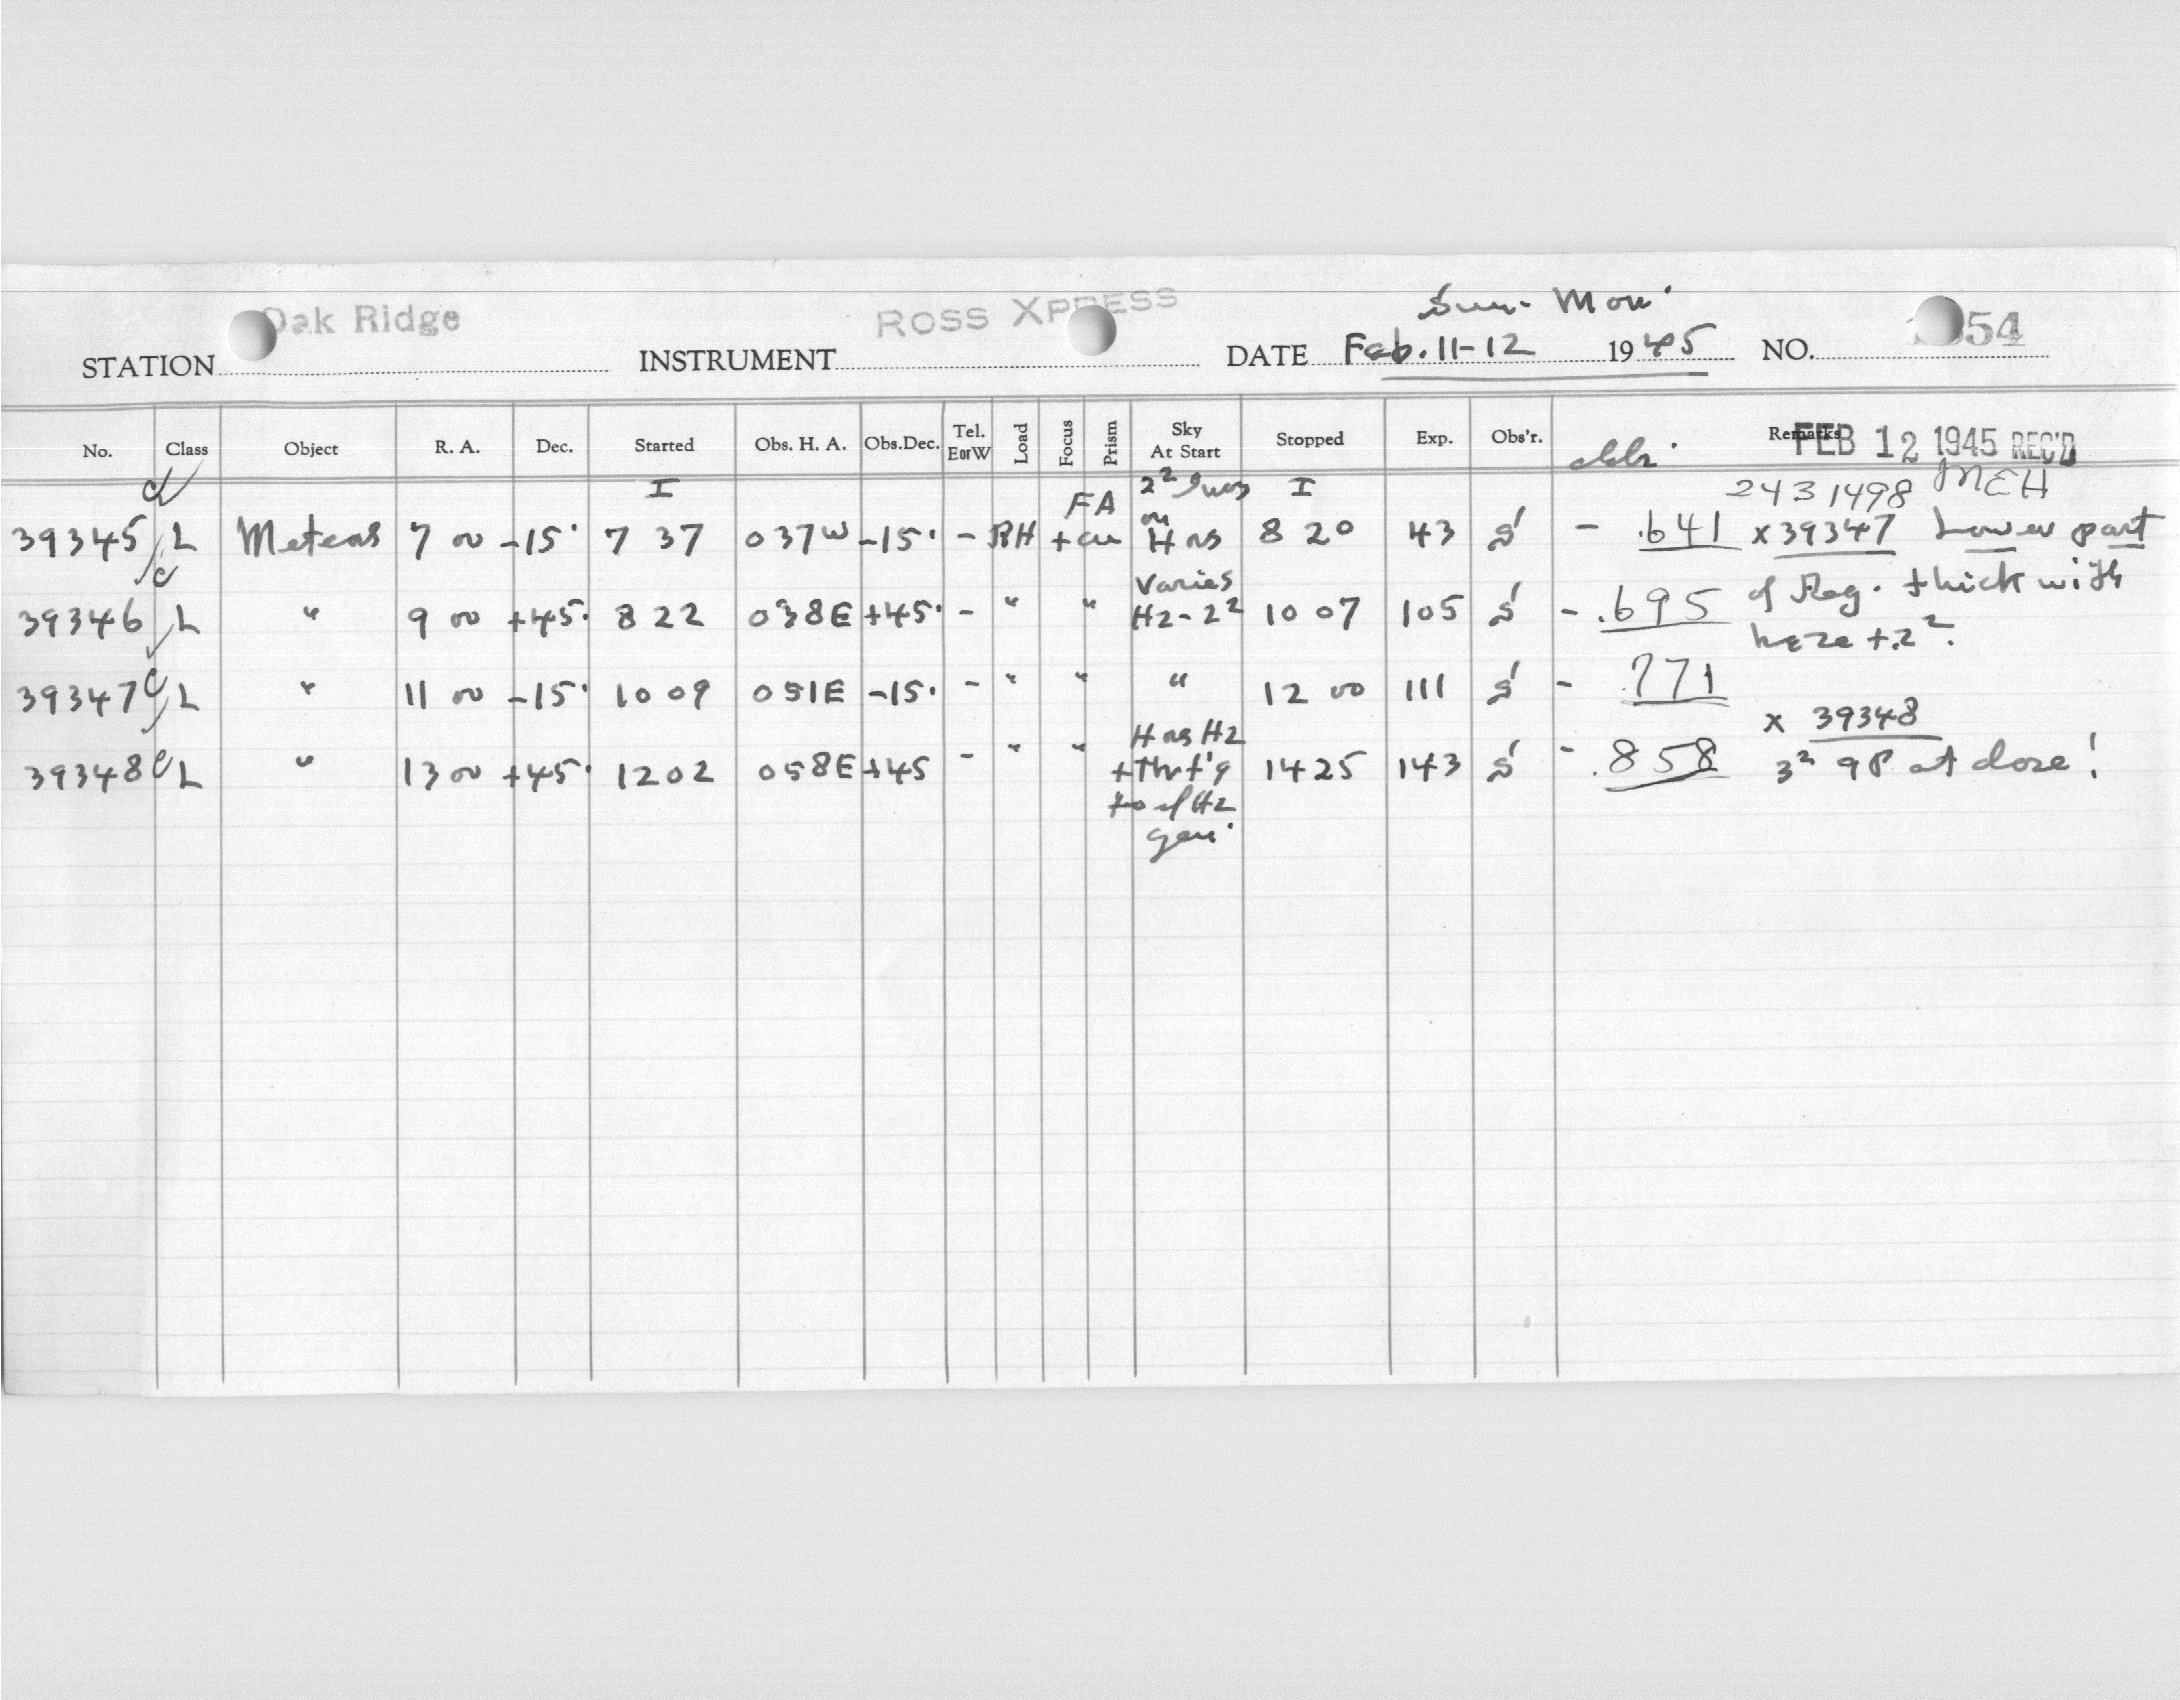 Sun- Mon.
STATION Oak Ridge INSTRUMENT ROSS XPRESS DATE Feb. 11-12 1945 NO. 54
No. Class Object R. A. Dec. Started Obs. H. A. Obs.Dec. Tel. E or W Load Focus Prism Sky At Start Stopped Exp. Obs'r. Remarks FEB 12 1945 REC'D
I FA 2² I 2431498 MEH
39345 L Meteors 7 00 -15° 7 37 0 37W -15° - RH + cu Hns 8 20 43 S' - .641 x 39347 Lower part
39346 L " 9 00 +45° 8 22 0 38E +45° - " " Varies H2-2² 10 07 105 S' - .695 of Reg. thick with
haze + 2².
39347 C L " 11 00 -15° 10 09 0 51E -15° - " " " 12 00 111 S' - .771
x 39348
39348 C L " 13 00 +45° 12 02 0 58E +45 - " " Hns H2 14 25 143 S' - .858 3² 9P at close!